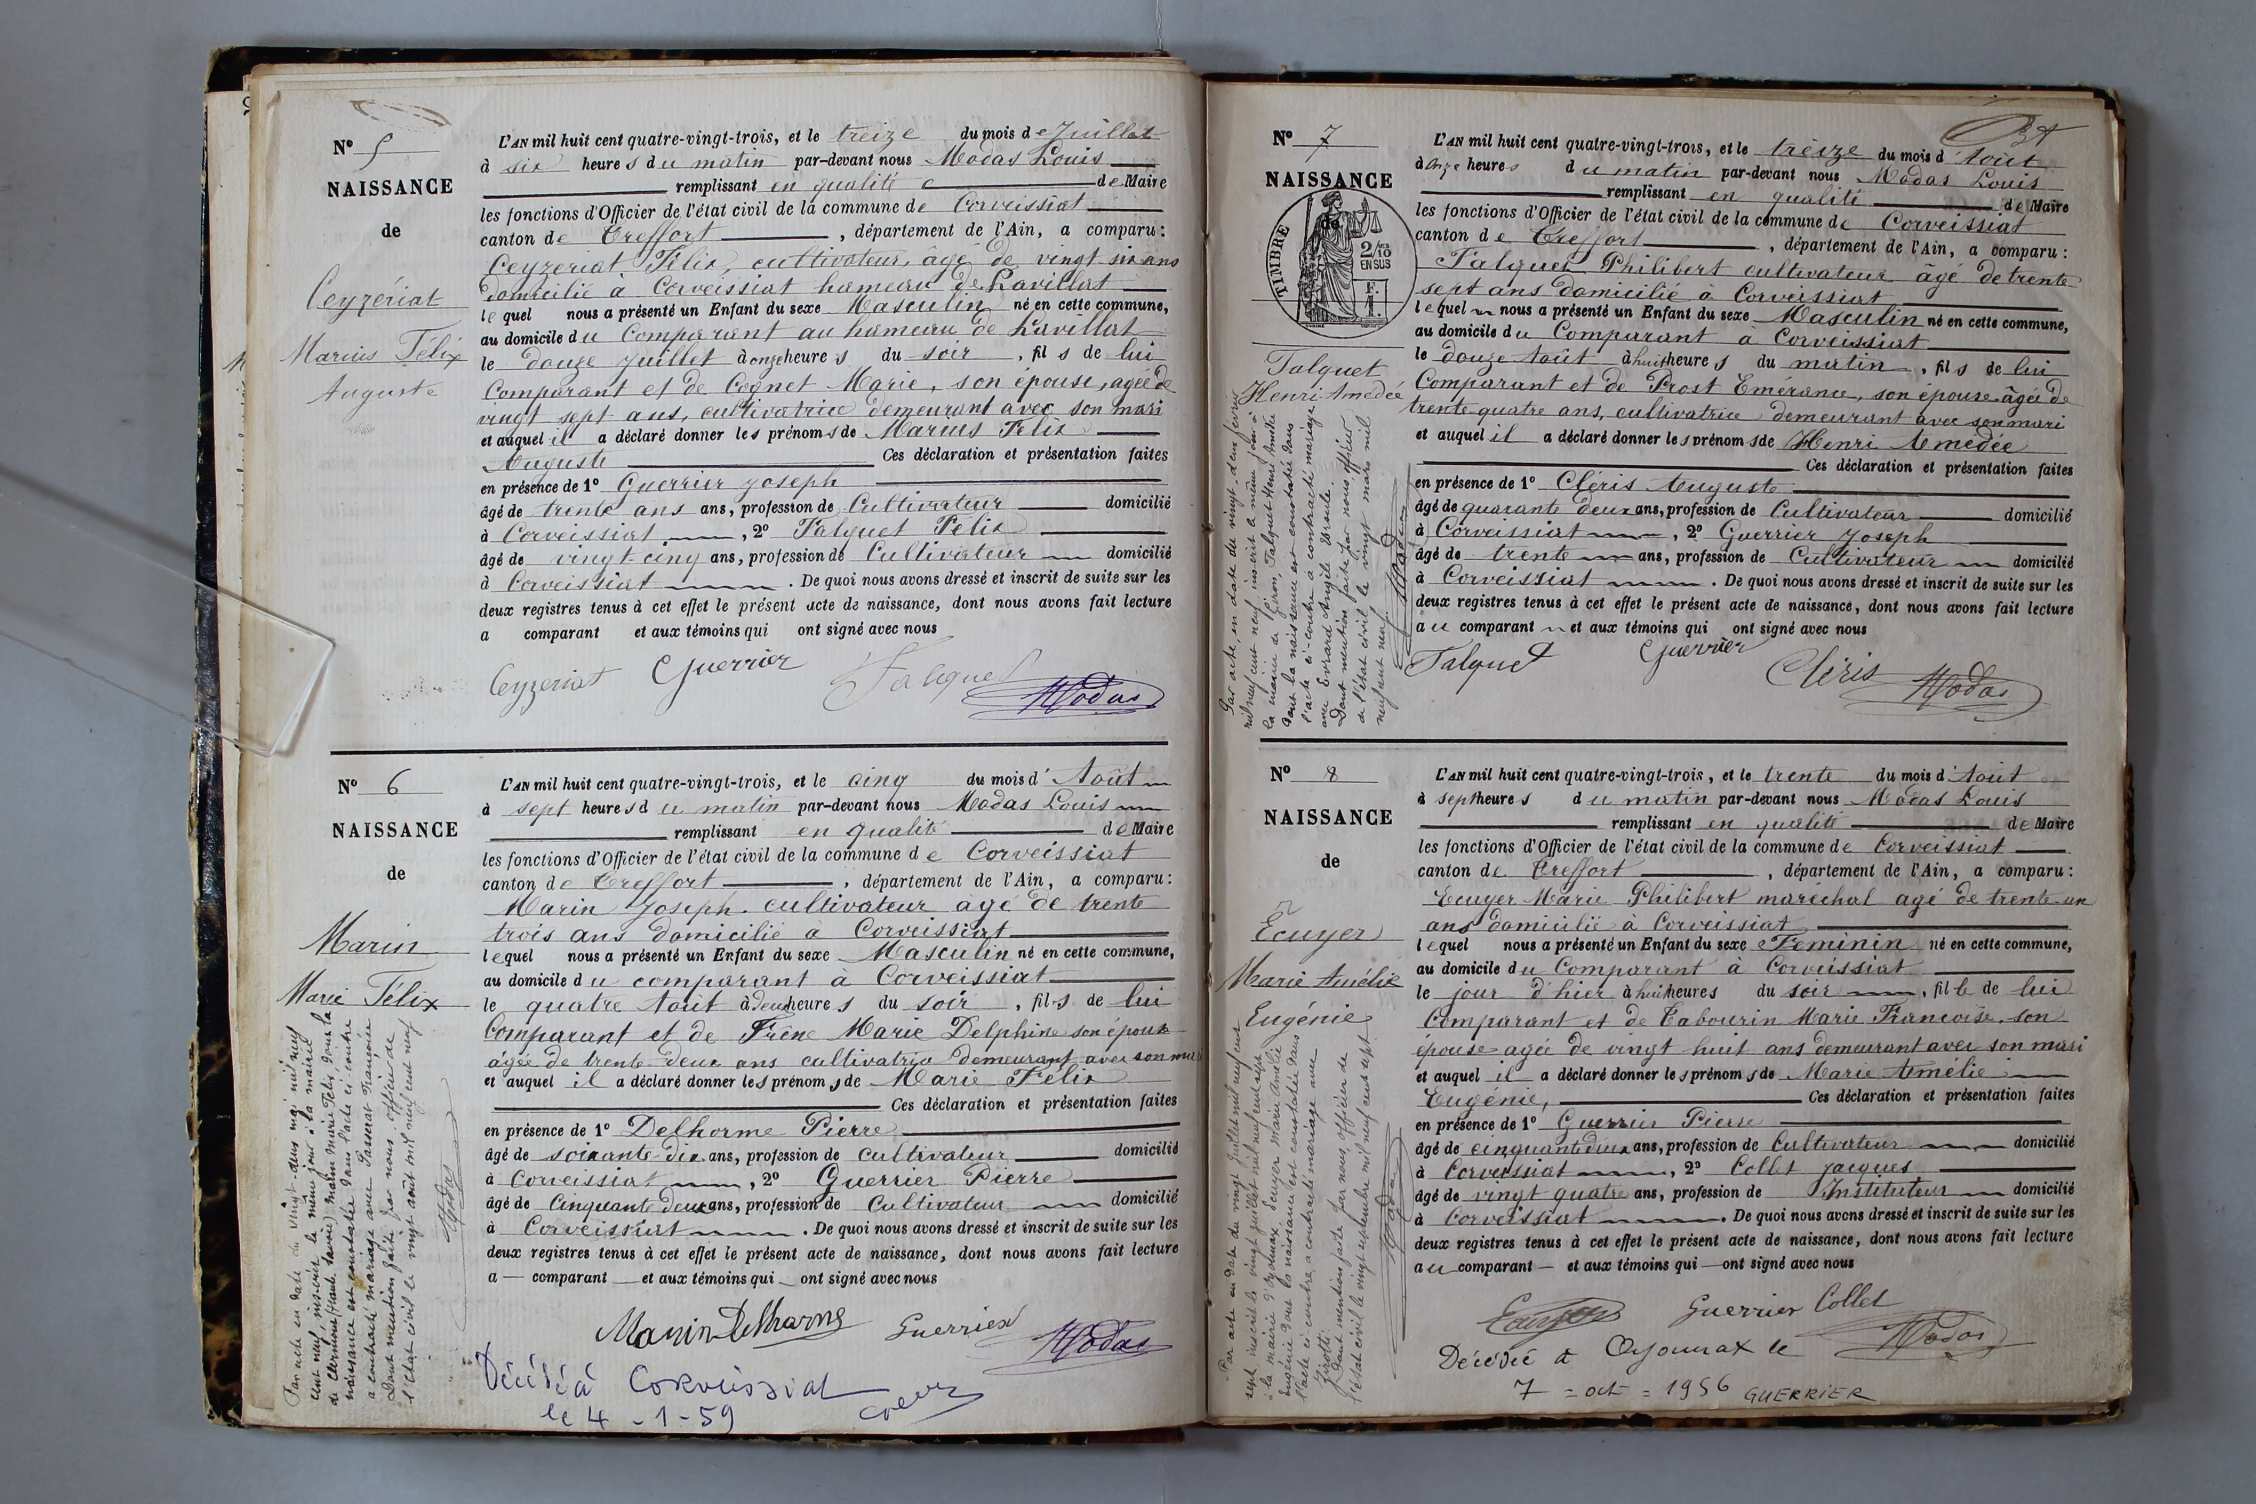 Nº 5
NAISSANCE
de
Ceyzériat
Marius Félix
Auguste
L'AN mil huit cent quatre-vingt-trois, et le treize du mois de Juillet
à six heures du matin par-devant nous Modas Louis
remplissant en qualité de Maire
les fonctions d'Officier de l'état civil de la commune de Corveissiat
canton de Treffort, département de l'Ain, a comparu:
Ceyzeriat Félix, cultivateur, âgé de vingt six ans
domicilié à Corveissiat hameau de Lavillat
lequel nous a présenté un Enfant du sexe Masculin né en cette commune,
au domicile du Comparant au hameau de Lavillat
le douze Juillet à onze heures du soir, fils de lui
Comparant et de Cognet Marie, son épouse, agée de
vingt sept ans, cultivatrice demeurant avec son mari
et auquel il a déclaré donner les prénoms de Marius Felix
Auguste Ces déclaration et présentation faites
en présence de 1º Guerrier Joseph
âgé de trente ans ans, profession de Cultivateur domicilié
à Corveissiat, 2º Falquet Felix
âgé de vingt cinq ans, profession de Cultivateur domicilié
à Corveissiat. De quoi nous avons dressé et inscrit de suite sur les
deux registres tenus à cet effet le présent acte de naissance, dont nous avons fait lecture
a comparant et aux témoins qui ont signé avec nous
Ceyzeriat Guerrier Falquet Modas
Nº 6
NAISSANCE
de
Marin
Marie Félix
L'AN mil huit cent quatre-vingt-trois, et le cinq du mois d'Août
à sept heures du matin par-devant nous Modas Louis
remplissant en qualité de Maire
les fonctions d'Officier de l'état civil de la commune de Corveissiat
canton de Treffort, département de l'Ain, a comparu:
Marin Joseph cultivateur agé de trente
trois ans domicilié a Corveissiat
lequel nous a présenté un Enfant du sexe Masculin né en cette commune,
au domicile du comparant à Corveissiat
le quatre Août à deux heures du soir, fils de lui
Comparant et de Frêne Marie Delphine son épouse
âgée de trente deux ans cultivatrice demeurant avec son mari
et auquel il a déclaré donner les prénoms de Marie Félix
Ces déclaration et présentation faites
en présence de 1º Delhorme Pierre
âgé de soixante-dix ans, profession de cultivateur domicilié
à Corveissiat, 2º Guerrier Pierre
âgé de Cinquante deux ans, profession de Cultivateur domicilié
à Corveissiat. De quoi nous avons dressé et inscrit de suite sur les
deux registres tenus à cet effet le présent acte de naissance, dont nous avons fait lecture
a comparant et aux témoins qui ont signé avec nous
Marin Delhorme Guerrier Modas
Décédé à Corveissiat
le 4-1-59
Par acte en date du vingt-deux mai mil neuf
cent neuf inscrit le même jour à la mairie
de Clermont Marin Marie Félix dont la
naissance est constatée dans l'acte ci-contre
a contracté mariage avec Passerat Françoise
Dont mention faite par nous officier de
l'état civil le vingt août mil neuf cent neuf
Modas
Nº 7
NAISSANCE
de
TIMBRE
2/10
EN SUS
F.
1.
Falquet
Henri Amedée
L'AN mil huit cent quatre-vingt-trois, et le treize du mois d'Août
à onze heures du matin par-devant nous Modas Louis
remplissant en qualité de Maire
les fonctions d'Officier de l'état civil de la commune de Corveissiat
canton de Treffort, département de l'Ain, a comparu:
Falquet Philibert cultivateur âgé de trente
sept ans domicilié à Corveissiat
lequel nous a présenté un Enfant du sexe Masculin né en cette commune,
au domicile du Comparant à Corveissiat
le douze Août à huit heures du matin, fils de lui
Comparant et de Prost Emérance, son épouse âgée de
trente quatre ans, cultivatrice demeurant avec son mari
et auquel il a déclaré donner les prénoms de Henri Amedée
Ces déclaration et présentation faites
en présence de 1º Cléris Auguste
âgé de quarante deux ans, profession de Cultivateur domicilié
à Corveissiat, 2º Guerrier Joseph
âgé de trente ans, profession de Cultivateur domicilié
à Corveissiat. De quoi nous avons dressé et inscrit de suite sur les
deux registres tenus à cet effet le présent acte de naissance, dont nous avons fait lecture
au comparant et aux témoins qui ont signé avec nous
Falquet Guerrier Cléris Modas
Par acte en date du vingt-deux février
mil neuf cent neuf inscrit le même jour à
la mairie de Giron, Falquet Henri Amédée
dont la naissance est constatée dans
l'acte ci-contre a contracté mariage
avec Evrard Angèle
Dont mention faite par nous officier
de l'état civil le vingt mars mil
neuf cent neuf.
Modas
Nº 8
NAISSANCE
de
Ecuyer
Marie Amélie
Eugénie
L'AN mil huit cent quatre-vingt-trois, et le trente du mois d'Août
à sept heures du matin par-devant nous Modas Louis
remplissant en qualité de Maire
les fonctions d'Officier de l'état civil de la commune de Corveissiat
canton de Treffort, département de l'Ain, a comparu:
Ecuyer Marie Philibert maréchal agé de trente-un
ans domicilié à Corveissiat
lequel nous a présenté un Enfant du sexe Feminin né en cette commune,
au domicile du Comparant à Corveissiat
le jour d'hier à huit heures du soir, fille de lui
Comparant et de Tabourin Marie Françoise, son
épouse agée de vingt huit ans demeurant avec son mari
et auquel il a déclaré donner les prénoms de Marie Amélie
Eugénie, Ces déclaration et présentation faites
en présence de 1º Guerrier Pierre
âgé de cinquante deux ans, profession de Cultivateur domicilié
à Corveissiat, 2º Collet Jacques
âgé de vingt quatre ans, profession de Instituteur domicilié
à Corveissiat. De quoi nous avons dressé et inscrit de suite sur les
deux registres tenus à cet effet le présent acte de naissance, dont nous avons fait lecture
au comparant et aux témoins qui ont signé avec nous
Ecuyer Guerrier Collet Modas
Décédée à Oyonnax le
7 = oct = 1956 GUERRIER
Par acte en date du vingt juillet mil neuf cent
sept inscrit le vingt juillet mil neuf cent sept
à la mairie d'Oyonnax, Ecuyer Marie Amélie
Eugénie dont la naissance est constatée dans
l'acte ci contre, a contracté mariage avec
Dont mention faite par nous, officier de
l'état civil le vingt septembre mil neuf cent sept
Modas